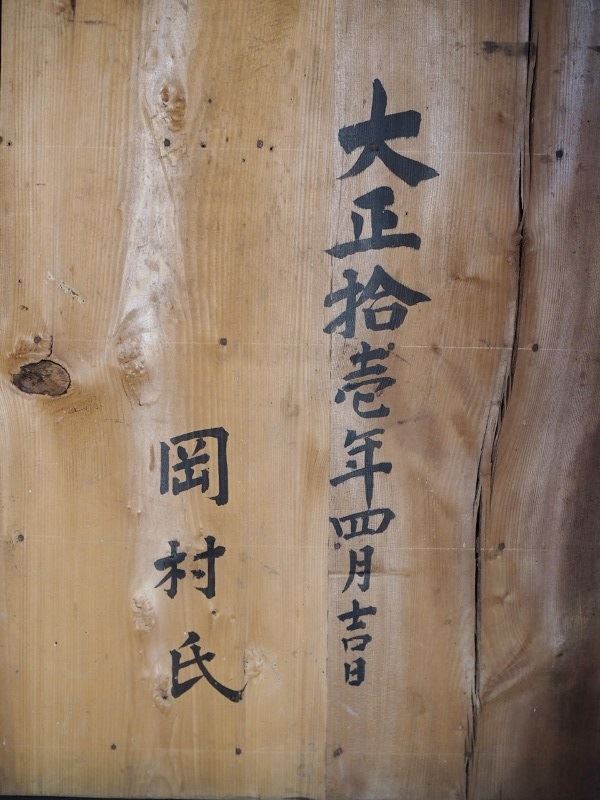 大正拾壱年四月吉日
岡村氏